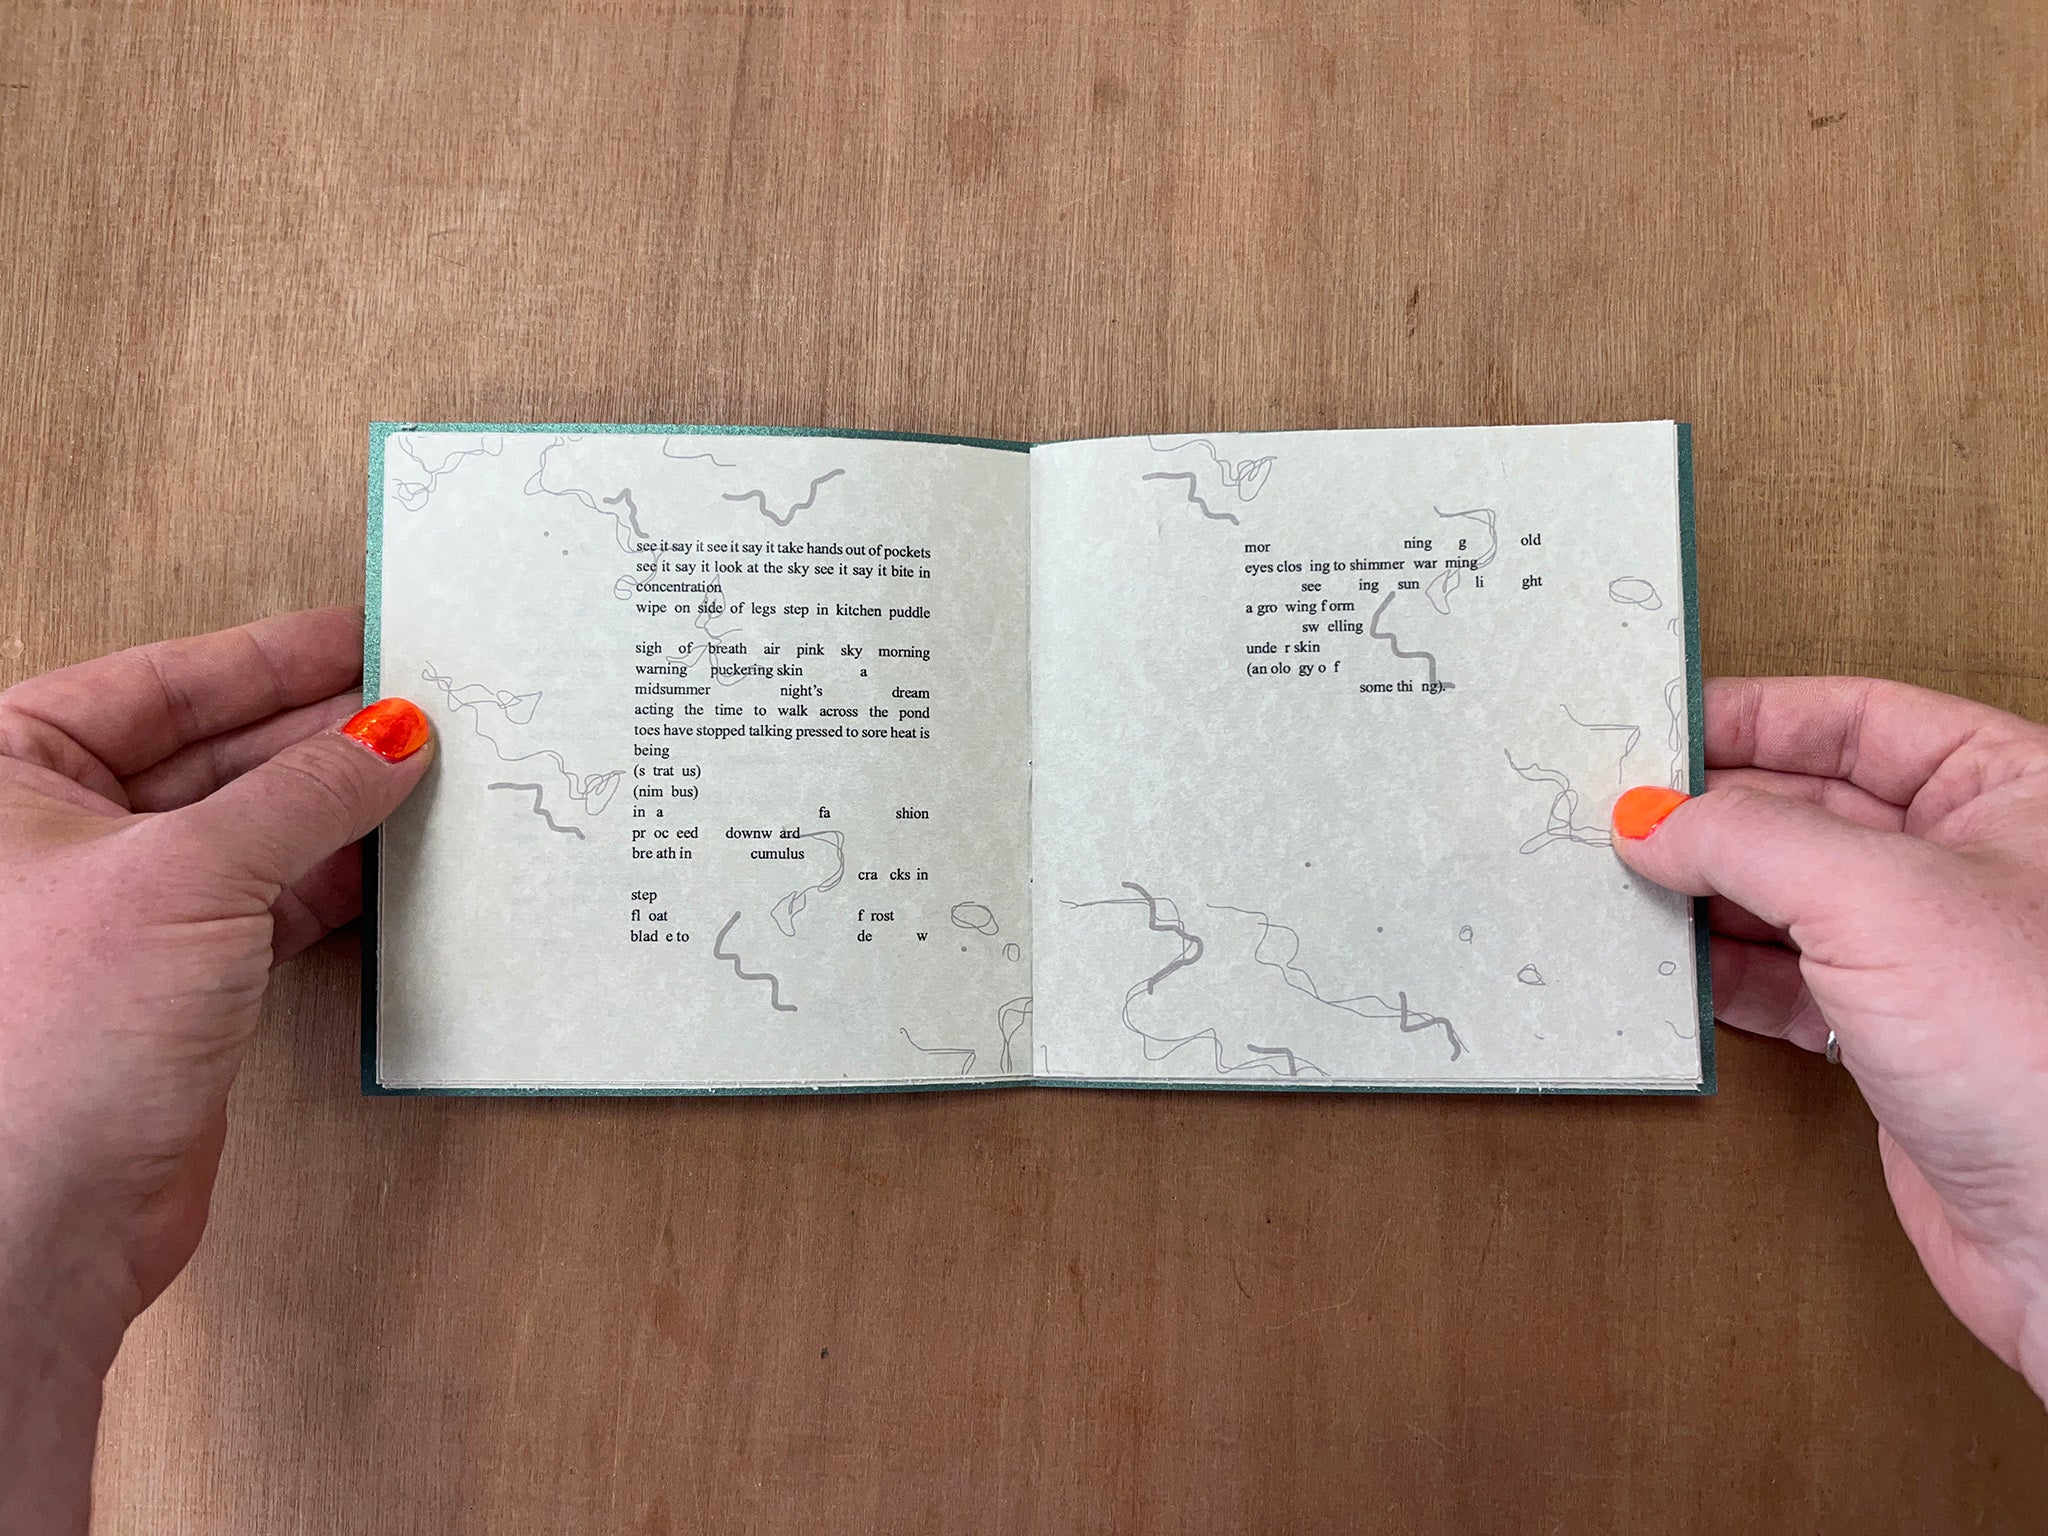 see it say it see it say it take hands out of pockets
see it say it look at the sky see it say it bite in
concentration
wipe on side of legs step in kitchen puddle
sigh of breath air pink sky morning
warning puckering skin a
midsummer night's dream
acting the time to walk across the pond
toes have stopped talking pressed to sore heat is
being
(s trat us)
(nim bus)
in a fa shion
pr oc eed downw ard
bre ath in cumulus
cra cks in
step
fl oat f rost
blad e to de w
mor ning g old
eyes clos ing to shimmer war ming
see ing sun li ght
a gro wing f orm
sw elling
unde r skin
(an olo gy o f
some thi ng).